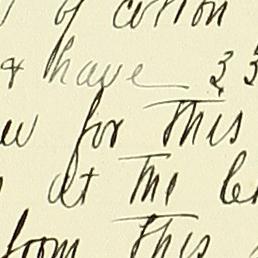 of cotton
& have 33
for this
at the
from this